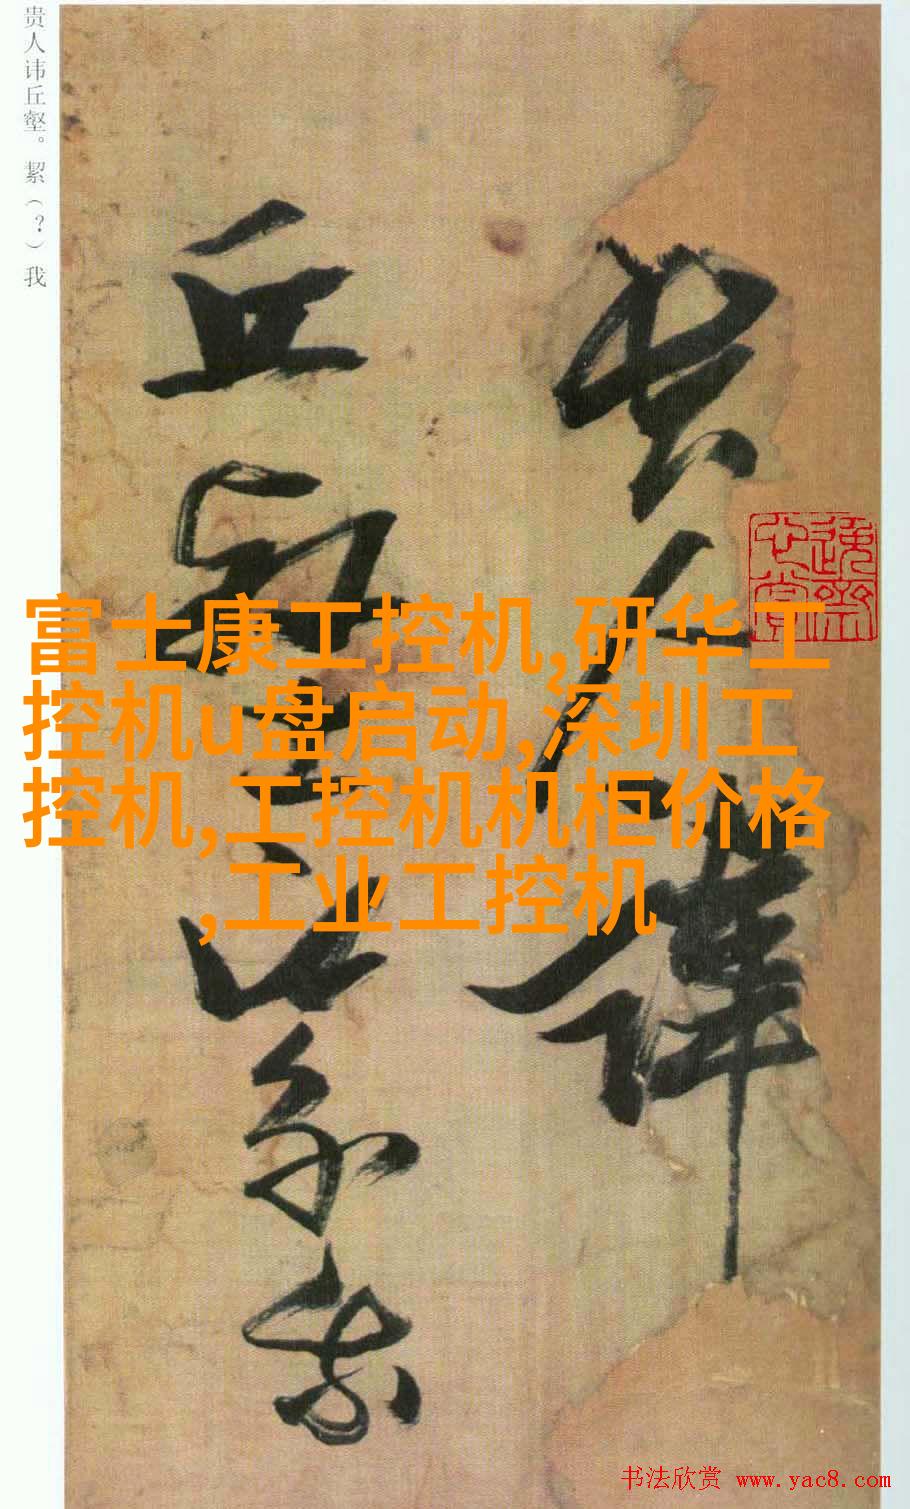 贵人讳丘壑。絜（？）我
贵人讳
丘壑絜我
富士康工控机,研华工
控机u盘启动,深圳工
控机,工控机机柜价格
,工业工控机
书法欣赏 www.yac8.com